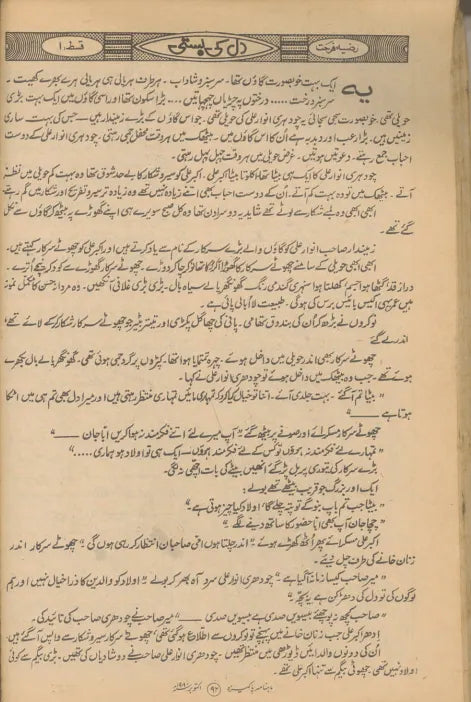 رضیہ فرحت
دل کی بستی
قسط ۱
یہ ایک بہت خوبصورت گاؤں تھا۔ سرسبز و شاداب۔ ہر طرف ہریالی ہی ہریالی ہرے بھرے کھیت۔
سرسبز درخت .... درختوں پہ چڑیاں چہچہاتیں .... بڑا سکون تھا اور اسی گاؤں میں ایک بہت بڑی
حویلی تھی خوبصورت سجی سجائی یہ چودھری انوار علی کی حویلی تھی۔ جو اس گاؤں کے بڑے زمیندار ہیں — جس کی بہت ساری
زمینیں ہیں۔ بڑا رعب اور دبدبہ ہے اُن کا اس گاؤں میں۔ بیٹھک میں ہر وقت محفل جمی رہتی۔ چودھری انوار علی کے دوست
احباب جمع رہتے۔ دعوتیں ہوتیں۔ غرض حویلی میں ہر وقت چہل پہل رہتی۔
چودھری انوار علی کا ایک ہی بیٹا تھا، اکلوتا بیٹا اکبر علی۔ اکبر علی کو سیر و شکار کا بے حد شوق تھا وہ بہت کم حویلی میں نظر
آتے۔ بیٹھک میں تو وہ بہت کم آتے۔ اُن کے دوست احباب بھی اتنے زیادہ نہیں تھے وہ زیادہ تر سیر و تفریح اور شکار میں گم رہتے
ابھی ابھی وہ شکار سے لوٹے تھے شاید یہ دوسرا دن تھا وہ کل صبح سویرے ہی اپنے گھوڑے پر بیٹھ کر گاؤں سے نکل
گئے تھے۔
زمیندار صاحب انوار علی کو گاؤں والے بڑے سرکار کے نام سے یاد کرتے ہیں اور اکبر علی کو چھوٹے سرکار کہتے ہیں۔
ابھی ابھی حویلی کے سامنے چھوٹے سرکار کا گھوڑا آ کر رکا تھا نوکر چاکر دوڑے۔ چھوٹے سرکار گھوڑے سے کود کر نیچے اُترے۔
دراز قد، گٹھا ہوا جسم، کھلتا ہوا سنہری گندمی رنگ گھونگھریالے سیاہ بال۔ بڑی بڑی غلافی آنکھیں۔ وہ مردانہ حسن کا مکمل نمونہ
ہیں عمر یہی اکیس بائیس برس کی ہوگی۔ طبیعت لا ابالی پائی ہے۔
نوکروں نے بڑھ کر اُن کی بندوق تھامی۔ پانی کی چھاگل پکڑی اور تیتر بٹیر جو چھوٹے سرکار شکار کر کے لائے تھے،
اندر لے گئے
چھوٹے سرکار بھی اندر حویلی میں داخل ہوئے۔ چہرہ تمتمایا ہوا تھا۔ کپڑوں پر گرد جمی ہوئی تھی۔ گھونگھریالے بال بکھرے
ہوئے تھے۔ جب وہ بیٹھک میں داخل ہوئے تو چودھری انوار علی نے کہا۔
"بیٹا تم آ گئے۔ بہت جلدی آئے۔ اتنا تو خیال کیا کرو کہ تمہاری مائیں تمہاری منتظر رہتی ہیں اور میرا دل بھی تم ہی میں اٹکا
ہوتا ہے —"
چھوٹے سرکار مسکرائے اور صوفے پر بیٹھ گئے "آپ میرے لئے اتنے فکرمند نہ ہوا کریں ابّا جان —"
"تمہارے لئے فکرمند نہ ہوں تو کس کے لئے فکرمند ہوں — ایک ہی تو اولاد ہو ہماری ....."
بڑے سرکار کی تیوری پر بل پڑ گئے انھیں بیٹے کی بات اچھی نہ لگی۔
ایک اور بزرگ جو قریب بیٹھے تھے بولے:
"بیٹا جب تم باپ بنو گے تو پتہ چلے گا' اولاد کیا چیز ہوتی ہے۔"
"چچا جان آپ بھی ابّا حضور کا ساتھ دینے لگے۔"
اکبر علی مسکرائے پھر اُٹھ کھڑے ہوئے "اندر چلتا ہوں امّی صاحبان انتظار کر رہی ہوں گی" چھوٹے سرکار اندر
زنان خانے کی طرف چل دیئے۔
"میر صاحب کیسا زمانہ آ گیا ہے۔" چودھری انوار علی سرد آہ بھر کر بولے "اولاد کو والدین کا ذرا خیال نہیں اور ہم
لوگوں کی تو دل کی دھڑکن ہے یہ بچہ۔"
"صاحب کچھ نہ پوچھئے بیسویں صدی ہے بیسویں صدی —" میر صاحب نے چودھری صاحب کی تائید کی۔
اِدھر اکبر علی جب زنان خانے میں پہنچے تو نوکروں سے اطلاع ہو گئی تھی، چھوٹے سرکار سیر و شکار سے واپس آ گئے ہیں
اُن کی دونوں والدائیں ڈیوڑھی میں منتظر تھیں۔ چودھری انوار علی صاحب نے دو شادیاں کی تھیں۔ بڑی بیگم سے کوئی
اولاد نہیں تھی۔ چھوٹی بیگم سے تنہا اکبر علی تھے۔
ماہنامہ پاکیزہ ۹۲ اکتوبر ۱۹۸۰ء